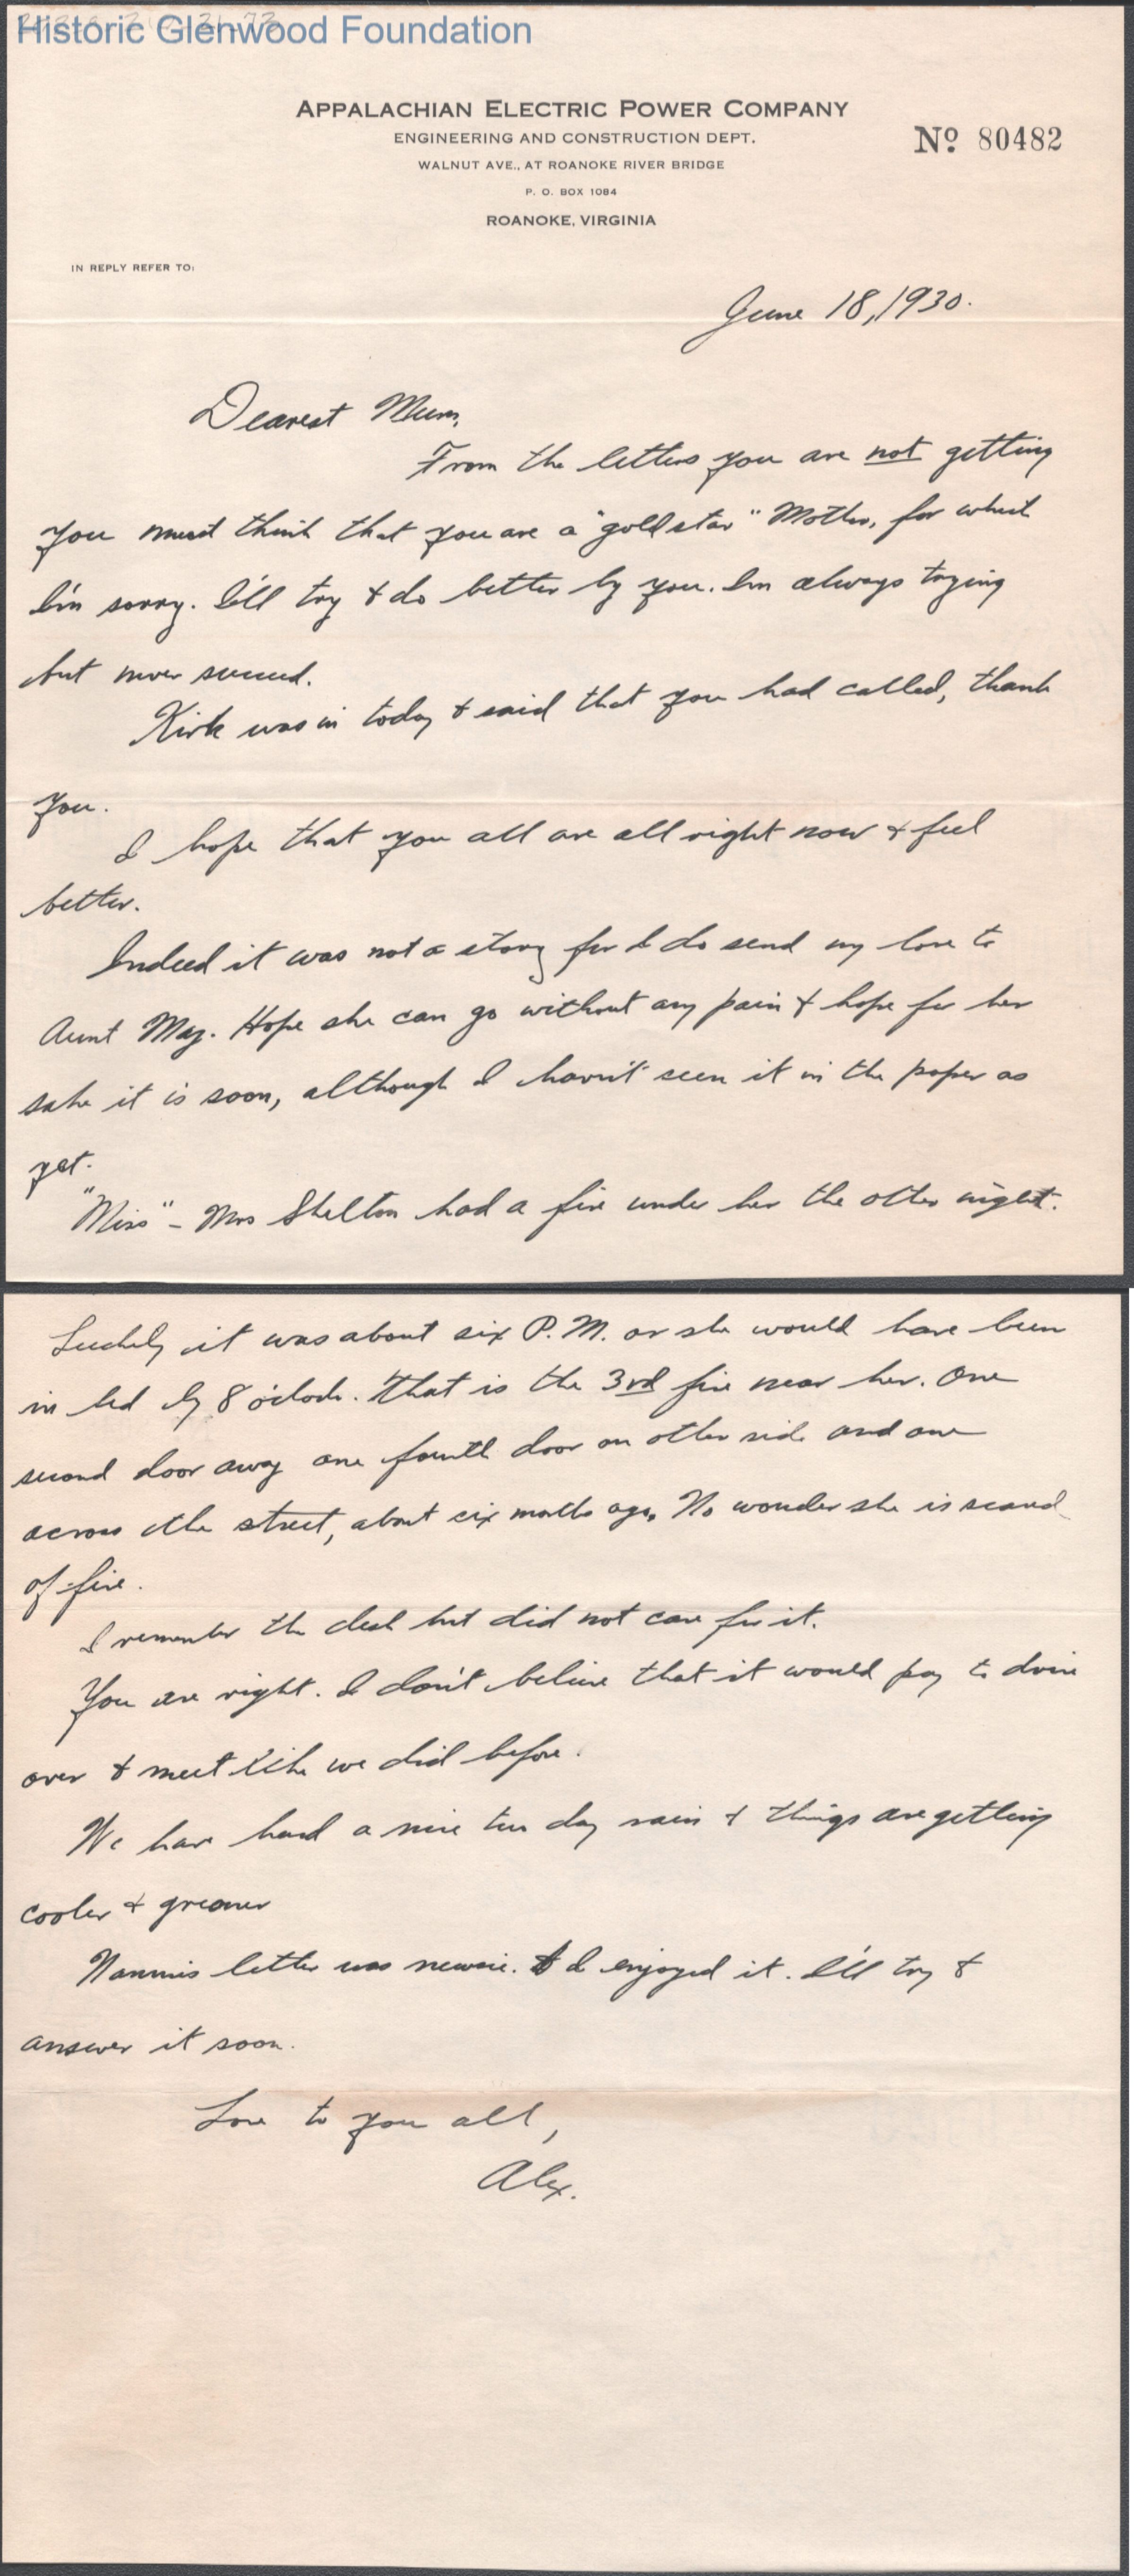 Historic Glenwood Foundation
APPALACHIAN ELECTRIC POWER COMPANY
ENGINEERING AND CONSTRUCTION DEPT.
Nº 80482
WALNUT AVE., AT ROANOKE RIVER BRIDGE
P. O. BOX 1084
ROANOKE, VIRGINIA
IN REPLY REFER TO:
June 18, 1930.
Dearest Mum,
From the letters you are not getting
you must think that you are a "gold star" Mother, for which
I'm sorry. I'll try & do better by you. I'm always trying
but never succeed.
Kirk was in today & said that you had called, thank
you.
I hope that you all are all right now & feel
better.
Indeed it was not a story for I do send my love to
Aunt May. Hope she can go without any pain & hope for her
sake it is soon, although I havn't seen it in the paper as
yet.
"Miss" - Mrs Shelton had a fire under her the other night.
Luckely it was about six P.M. or she would have been
in bed by 8 o'clock. That is the 3rd fire near her. One
second door away one fourth door on other side and one
across the street, about six months ago. No wonder she is scared
of fire.
I remember the desk but did not care for it.
You are right. I don't believe that it would pay to drive
over & meet like we did before.
We have had a nice two day rain & things are getting
cooler & greener
Nannies letter was newsie. & I enjoyed it. I'll try &
answer it soon.
Love to you all,
Alex.